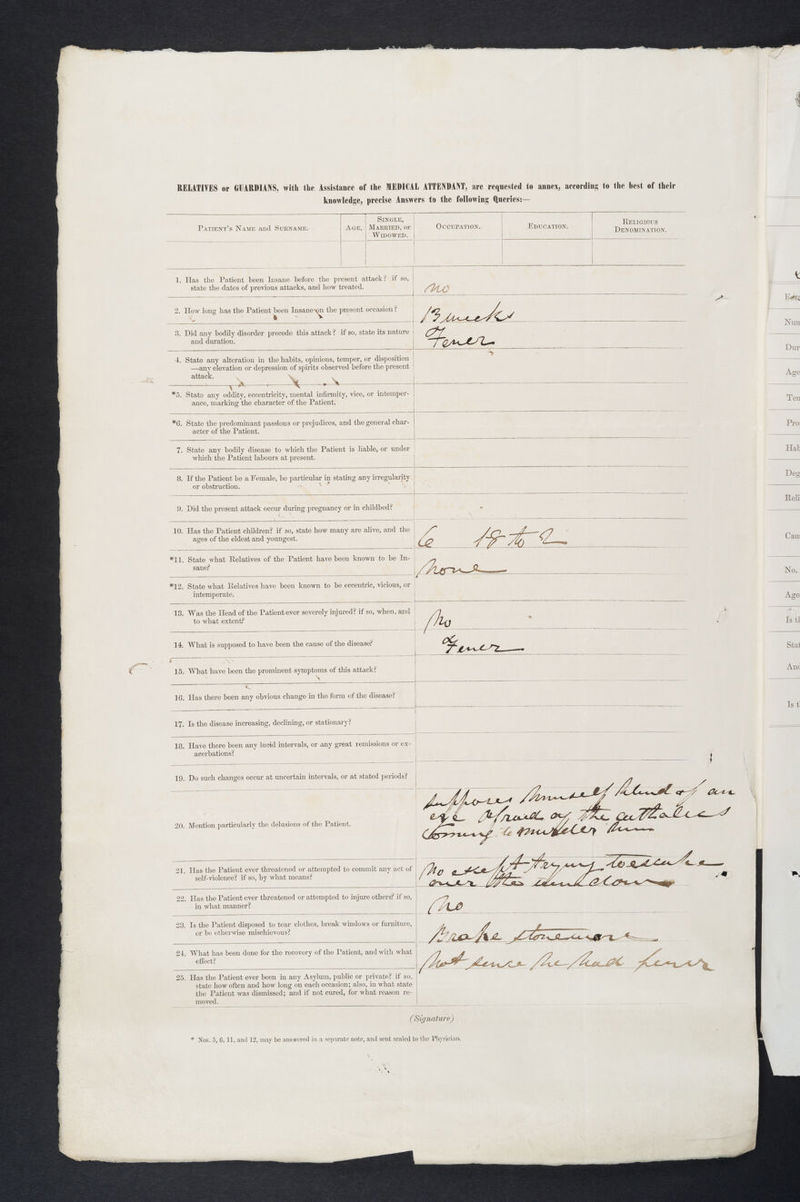 RELATIVES or GUARDIANS, with the Assistance of the MEDICAL ATTENDANT, are requested to annex, according to the best of their
knowledge, precise Answers to the following Queries:—
PATIENT'S NAME and SURNAME.
AGE.
SINGLE,
MARRIED, or
WIDOWED.
OCCUPATION.
EDUCATION.
RELIGIOUS
DENOMINATION.
1. Has the Patient been Insane before the present attack? if so,
state the dates of previous attacks, and how treated.
no
2. How long has the Patient been Insane on the present occasion?
13 weeks
3. Did any bodily disorder precede this attack? if so, state its nature
and duration.
Fever
4. State any alteration in the habits, opinions, temper, or disposition
—any elevation or depression of spirits observed before the present
attack.
*5. State any oddity, eccentricity, mental infirmity, vice, or intemper-
ance, marking the character of the Patient.
*6. State the predominant passions or prejudices, and the general char-
acter of the Patient.
7. State any bodily disease to which the Patient is liable, or under
which the Patient labours at present.
8. If the Patient be a Female, be particular in stating any irregularity
or obstruction.
9. Did the present attack occur during pregnancy or in childbed?
10. Has the Patient children? if so, state how many are alive, and the
ages of the eldest and youngest.
6 18 to 2
*11. State what Relatives of the Patient have been known to be In-
sane?
None
*12. State what Relatives have been known to be eccentric, vicious, or
intemperate.
13. Was the Head of the Patient ever severely injured? if so, when, and
to what extent?
No
14. What is supposed to have been the cause of the disease?
Fever
15. What have been the prominent symptoms of this attack?
16. Has there been any obvious change in the form of the disease?
17. Is the disease increasing, declining, or stationary?
18. Have there been any lucid intervals, or any great remissions or ex-
acerbations?
19. Do such changes occur at uncertain intervals, or at stated periods?
20. Mention particularly the delusions of the Patient.
Supposes himself blind of an
eye Afraid of the Catholics
Coming to murder him
21. Has the Patient ever threatened or attempted to commit any act of
self-violence? if so, by what means?
No except trying to escape
over the window
22. Has the Patient ever threatened or attempted to injure others? if so,
in what manner?
No
23. Is the Patient disposed to tear clothes, break windows or furniture,
or be otherwise mischievous?
Brake stoneware
24. What has been done for the recovery of the Patient, and with what
effect?
Not sence he had fever
25. Has the Patient ever been in any Asylum, public or private? if so,
state how often and how long on each occasion; also, in what state
the Patient was dismissed; and if not cured, for what reason re-
moved.
(Signature)
* Nos. 5, 6, 11, and 12, may be answered in a separate note, and sent sealed to the Physician.
Num
Dur
Age
Ten
Pro
Hab
Deg
Reli
Cau
No.
Age
Is th
Stat
Any
Is t